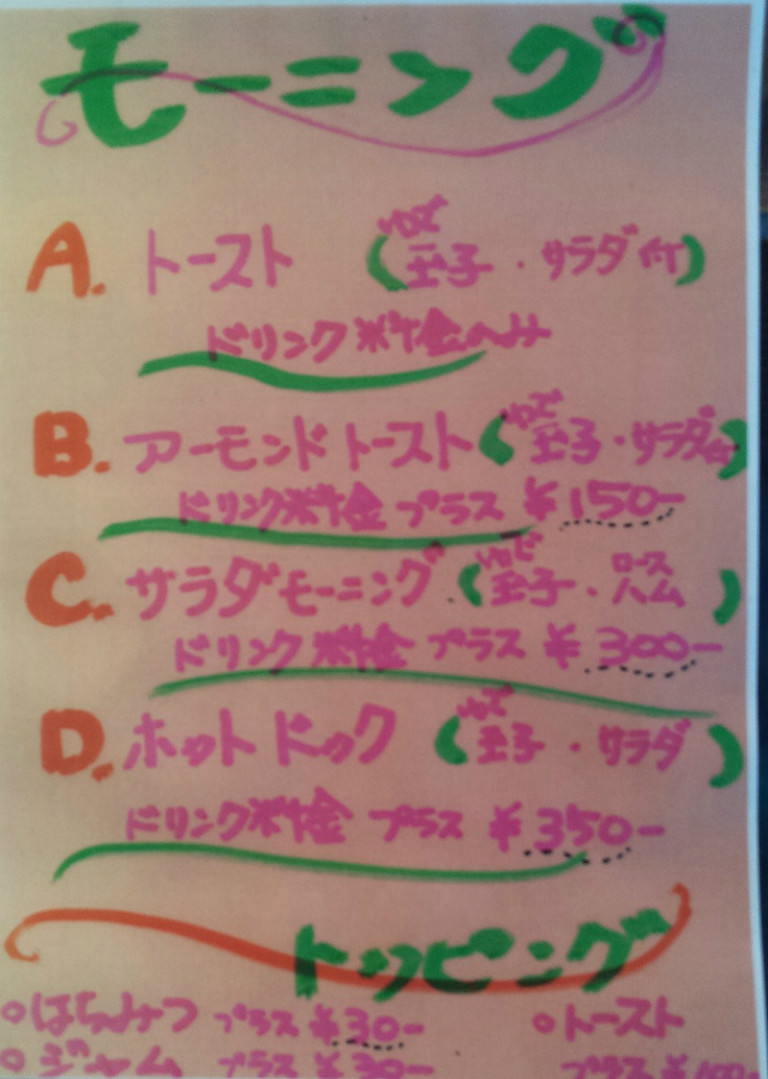 モーニング
A. トースト (ゆで玉子・サラダ付)
ドリンク料金のみ
B. アーモンドトースト (ゆで玉子・サラダ付)
ドリンク料金 プラス ¥150-
C. サラダモーニング (ゆで玉子・ロースハム)
ドリンク料金 プラス ¥300-
D. ホットドック (ゆで玉子・サラダ)
ドリンク料金 プラス ¥350-
トッピング
○はちみつ プラス ¥30- ○トースト
○ジャム プラス ¥30- プラス ¥100-